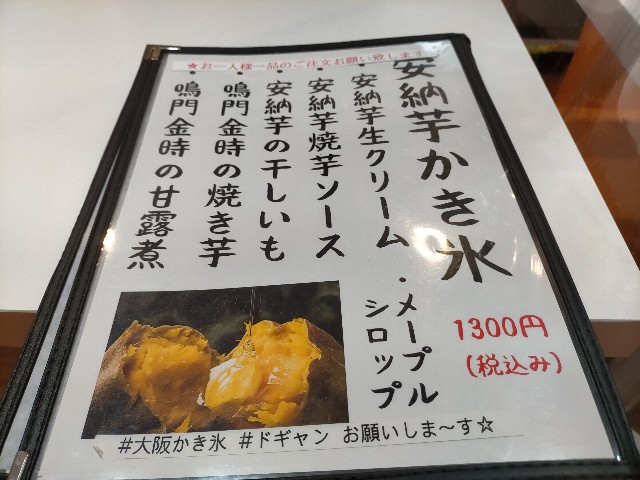 ★お一人様一品のご注文お願い致します
安納芋かき氷
・安納芋生クリーム
・安納芋焼芋ソース
・安納芋の干しいも
・鳴門金時の焼き芋
・鳴門金時の甘露煮
・メープル
シロップ
1300円
(税込み)
#大阪かき氷 #ドギャン お願いしま〜す☆